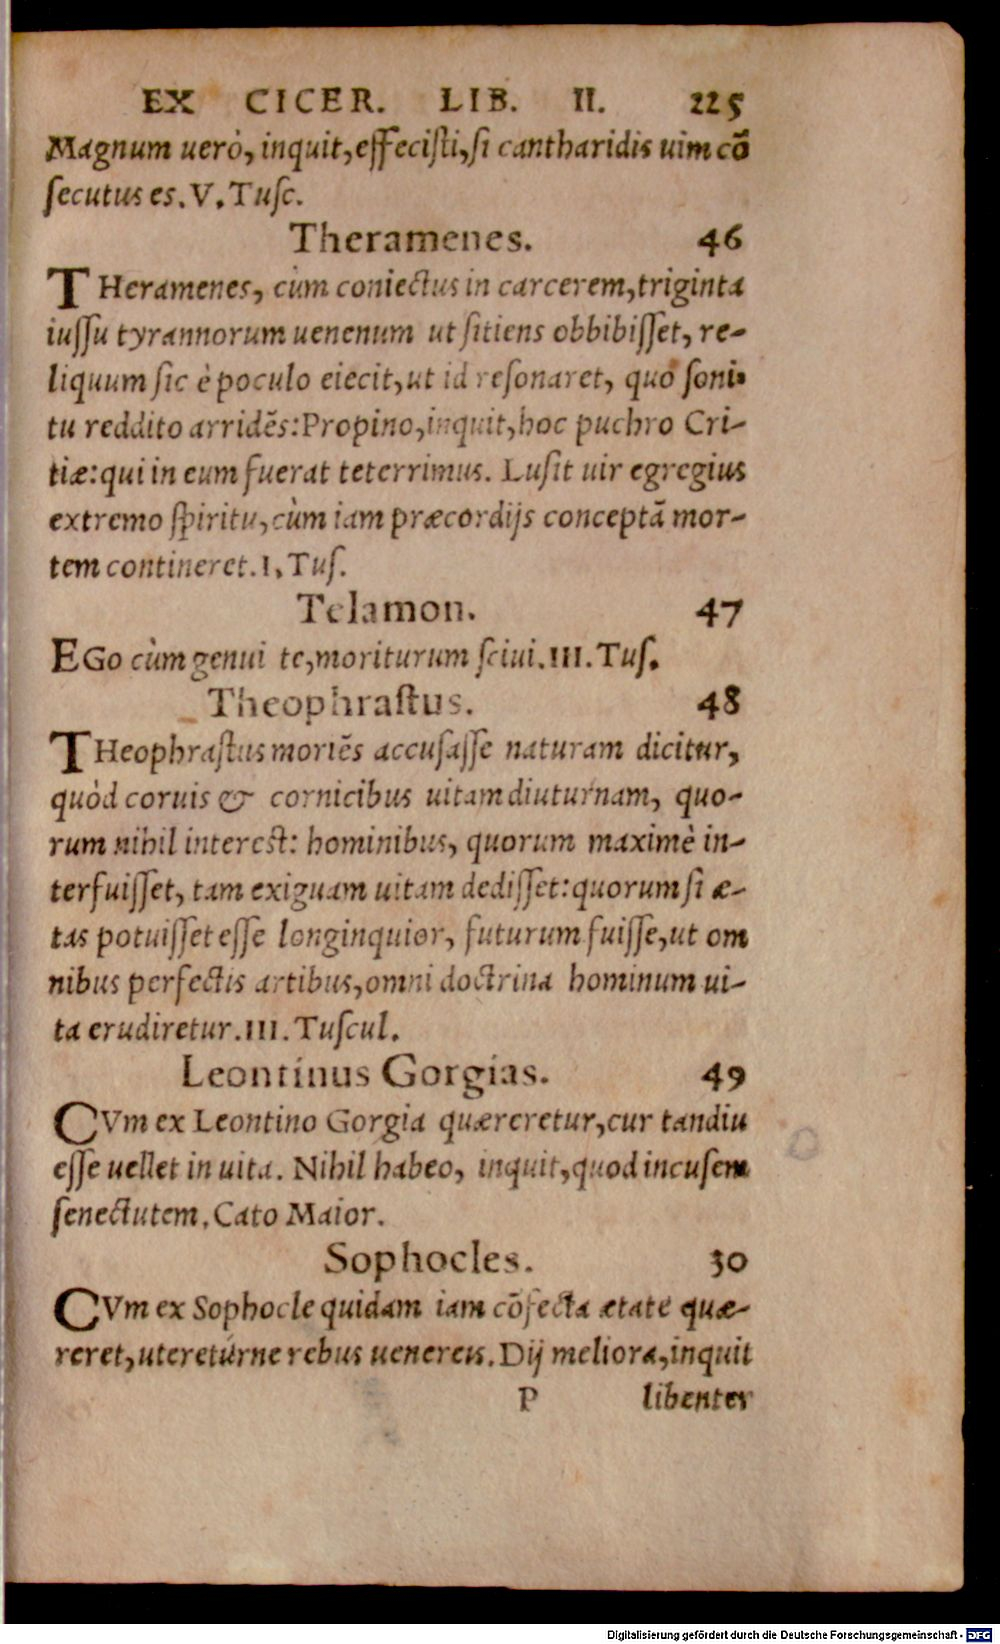 EX CICER. LIB. II. 225
Magnum uerò, inquit, effeciſti, ſi cantharidis uim cō
ſecutus es. V. Tuſc.
Theramenes. 46
THeramenes, cùm coniectus in carcerem, triginta
iuſſu tyrannorum uenenum ut ſitiens obbibiſſet, re-
liquum ſic è poculo eiecit, ut id reſonaret, quo ſoni-
tu reddito arridēs: Propino, inquit, hoc puchro Cri-
tiæ: qui in eum fuerat teterrimus. Luſit uir egregius
extremo ſpiritu, cùm iam præcordijs conceptā mor-
tem contineret. I. Tuſ.
Telamon. 47
EGo cùm genui te, moriturum ſciui. III. Tuſ.
Theophraſtus. 48
THeophraſtus moriēs accuſaſſe naturam dicitur,
quòd coruis & cornicibus uitam diuturnam, quo-
rum nihil intereſt: hominibus, quorum maximè in-
terfuiſſet, tam exiguam uitam dediſſet: quorum ſi æ-
tas potuiſſet eſſe longinquior, futurum fuiſſe, ut om
nibus perfectis artibus, omni doctrina hominum ui-
ta erudiretur. III. Tuſcul.
Leontinus Gorgias. 49
CVm ex Leontino Gorgia quæreretur, cur tandiu
eſſe uellet in uita. Nihil habeo, inquit, quod incuſem
ſenectutem. Cato Maior.
Sophocles. 30
CVm ex Sophocle quidam iam cōfecta ætate quæ-
reret, utereturne rebus uenereis. Dij meliora, inquit
P libenter
Digitalisierung gefördert durch die Deutsche Forschungsgemeinschaft - DFG